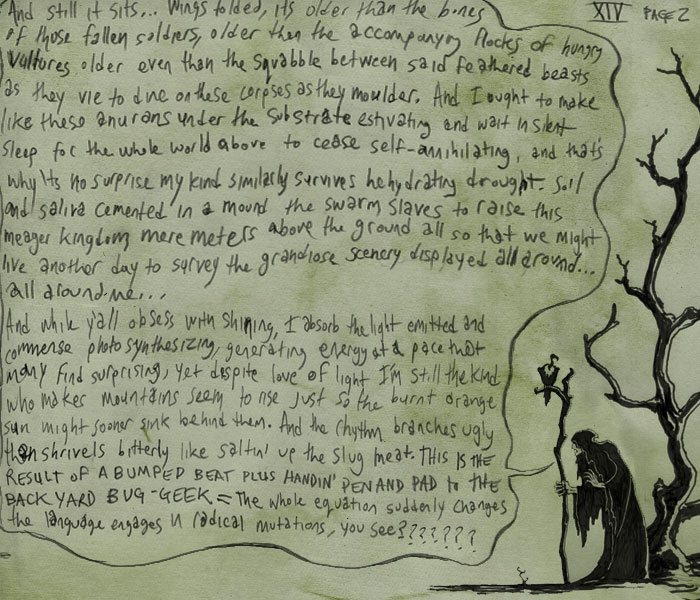 And still it sits... Wings folded, its older than the bones
of those fallen soldiers, older then the accompanying flocks of hungry
Vultures older even than the squabble between said feathered beasts
as they vie to dine on these corpses as they moulder. And I ought to make
like these anurans under the substrate estivating and wait in silent
sleep for the whole world above to cease self-annihilating, and that's
why its no surprise my kind similarly survives hehydrating drought. Soil
and saliva cemented in a mound the swarm slaves to raise this
meager kingdom mere meters above the ground all so that we might
live another day to survey the grandiose scenery displayed all around...
all around me...
And while y'all obsess with shining, I absorb the light emitted and
commense photosynthesizing, generating energy at a pace that
many find surprising, yet despite love of light I'm still the kind
who makes mountains seem to rise just so the burnt orange
sun might sooner sink behind them. And the rhythm branches ugly
than shrivels bitterly like saltin' up the slug meat. THIS IS THE
RESULT OF A BUMPED BEAT PLUS HANDIN' PEN AND PAD to the
BACK YARD BUG-GEEK = The whole equation suddenly changes
the language engages in radical mutations, you see???????
XIV PAGE 2